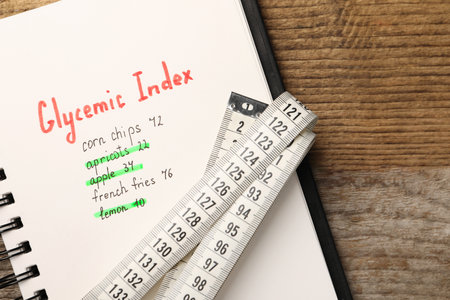 Glycemic Index
corn chips 42
apricots 22
apple 34
french fries 76
lemon 10
121
122
123
124
125
126
127
128
129
130
131
133
2
90
91
92
93
94
95
96
97
98
99